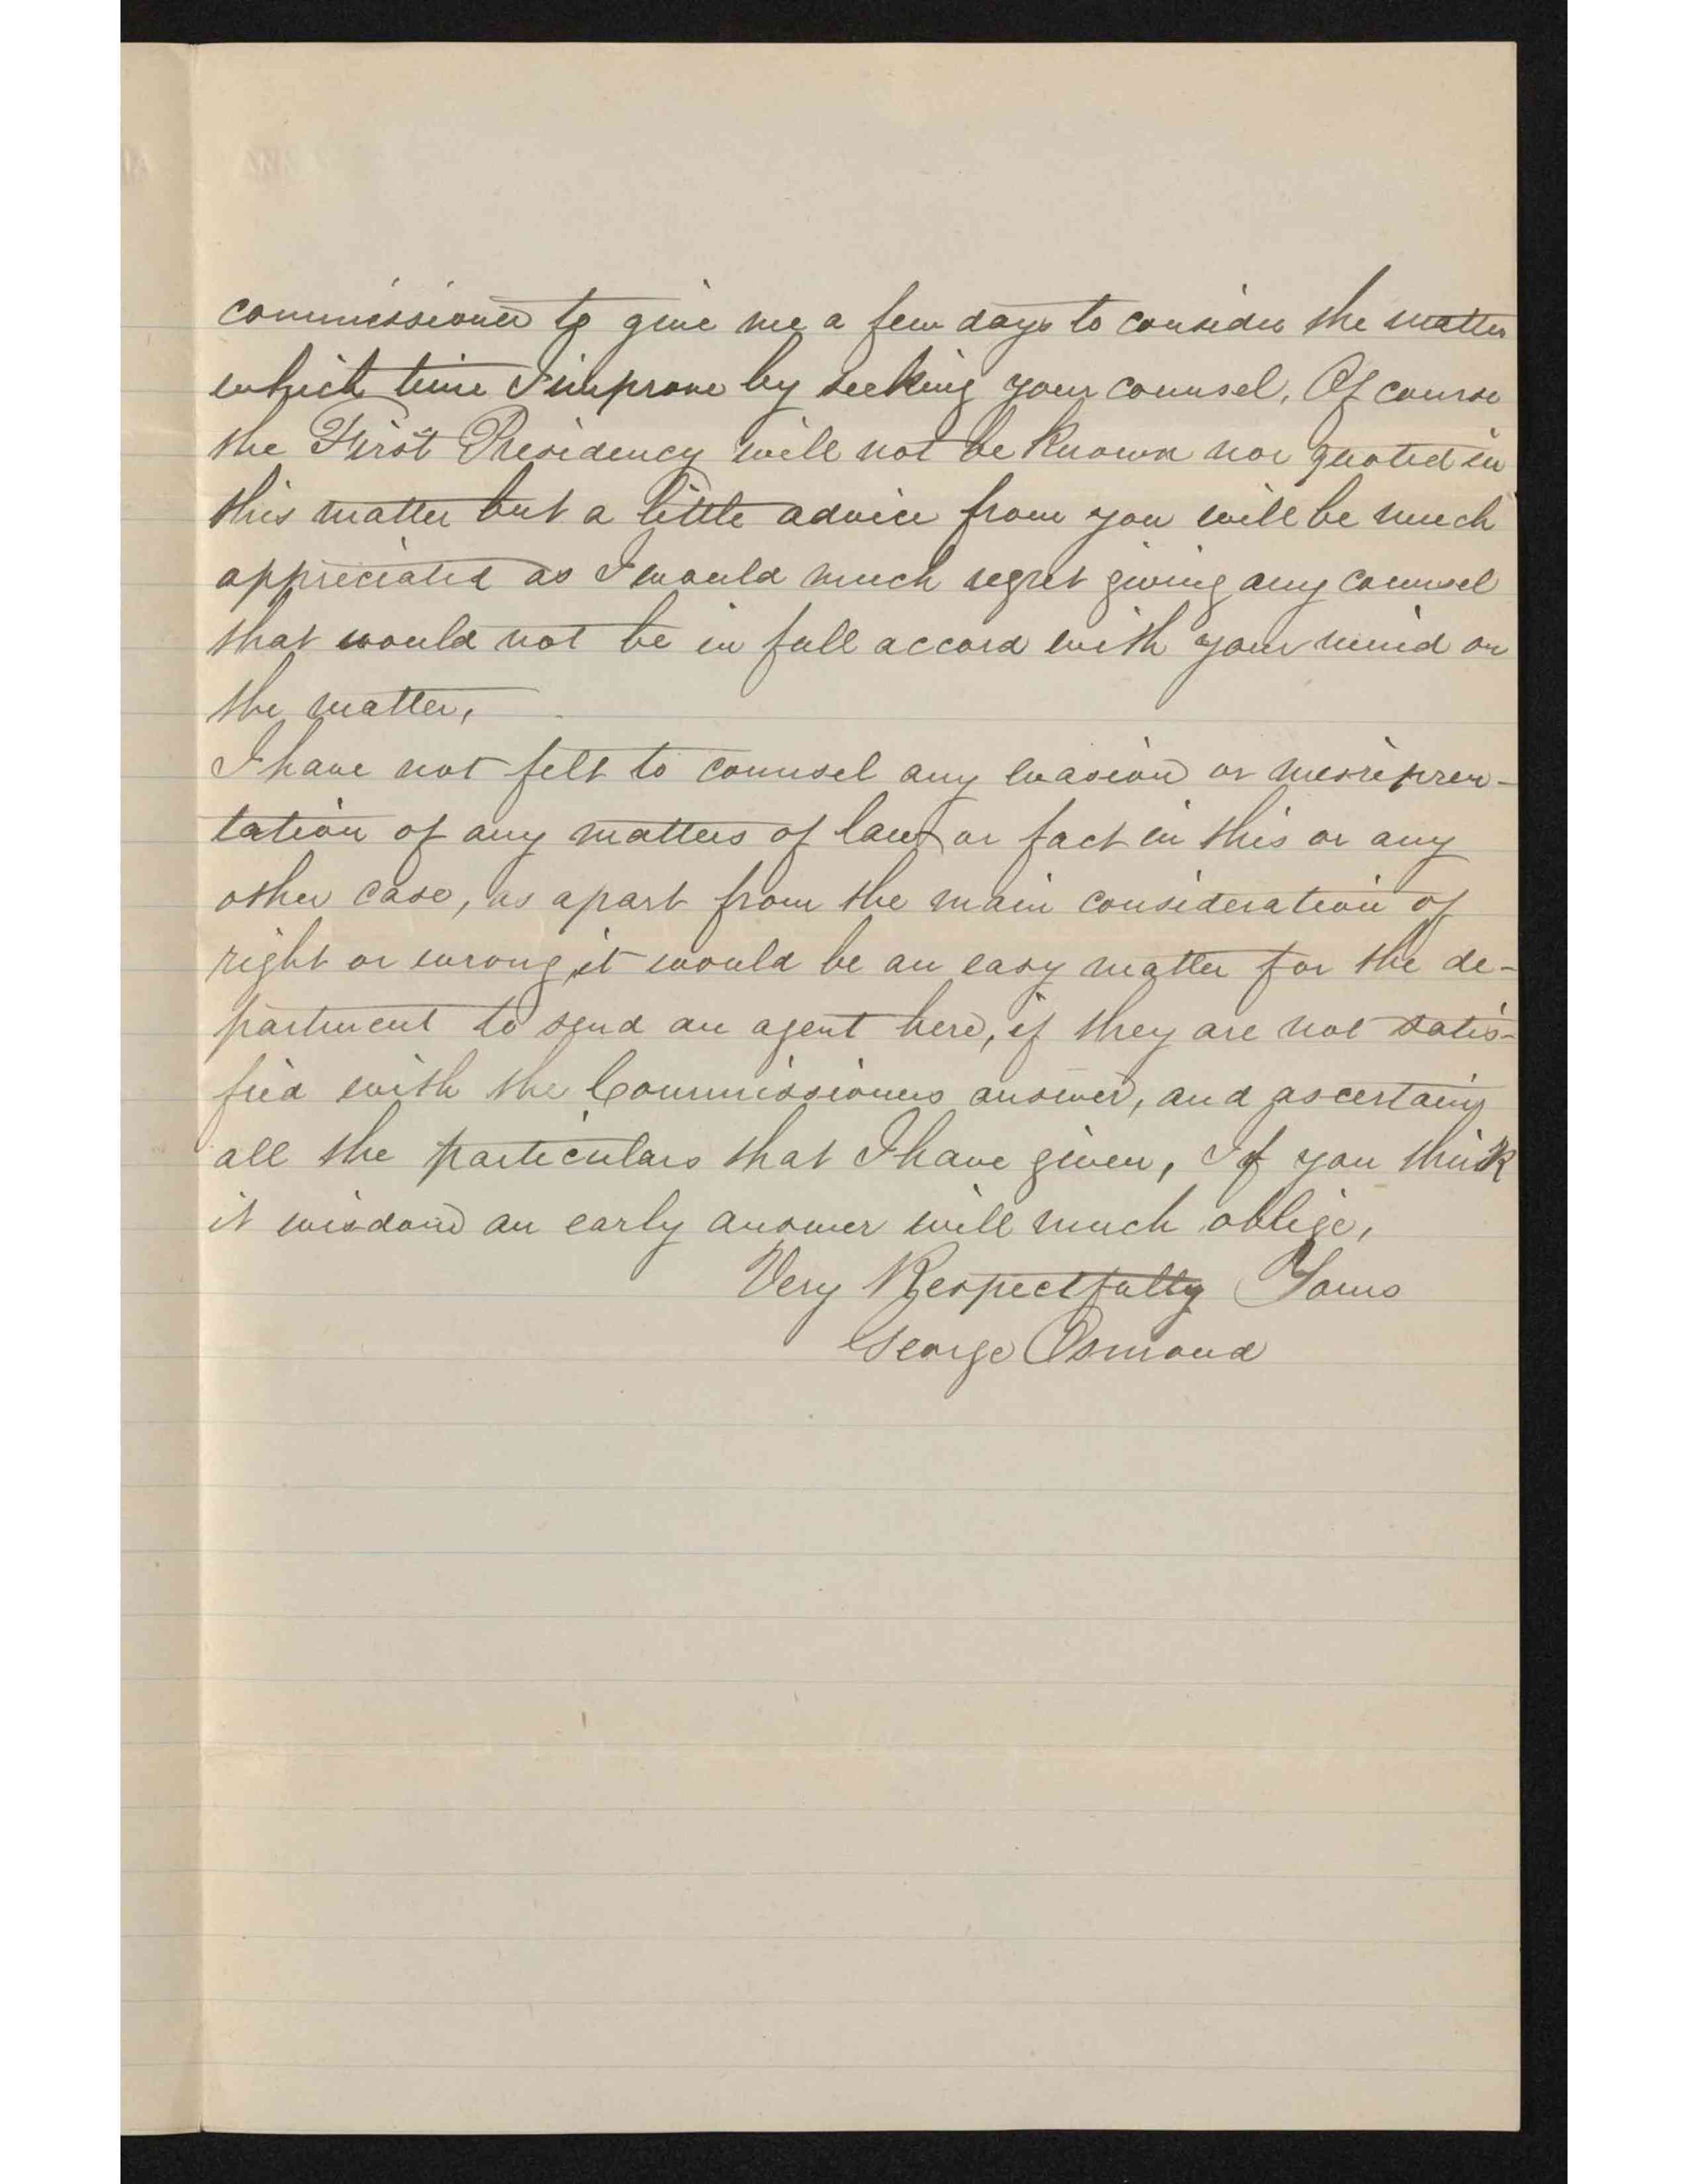 commissioner to give me a few days to consider the matter
which time I improve by seeking your counsel, Of course
the First Presidency will not be known nor quoted in
this matter but a little advice from you will be much
appreciated as I would much regret giving any counsel
that would not be in full accord with your mind on
the matter,
I have not felt to counsel any evasion or misrepren-
tation of any matters of law or fact in this or any
other case, as apart from the main consideration of
right or wrong, it would be an easy matter for the de-
partment to send an agent here, if they are not satis-
fied with the Commissioners answer, and ascertaing
all the particulars that I have given, If you think
it wisdom an early answer will much oblige,
Very Respectfully Yours
George Osmond